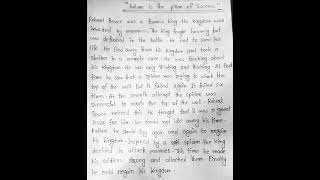 "Failure is the pillar of Success"
Robert Bruce was a famous king. His kingdom was
invaded by enemies. The king fought bravely but
was defeated in the battle. He fled to save his
life. He fled away from his kingdom and took a
shelter in a remote cave. He was thinking about
his kingdom. He was only thinking and thinking. At that
time he saw that a spider was trying to climb the
top of the wall. But it failed again. It failed six
times. At the seventh attempt the spider was
successful to reach the top of the wall. Robert
Bruce noticed this. He thought that it was a great
lesson for him. He should not like away his time.
Rather he should try again and again to regain
his kingdom. Inspired by a spider the king
decided to attack enemies. This time he made
his soldiers strong and attacked them. Finally
he could regain his kingdom.